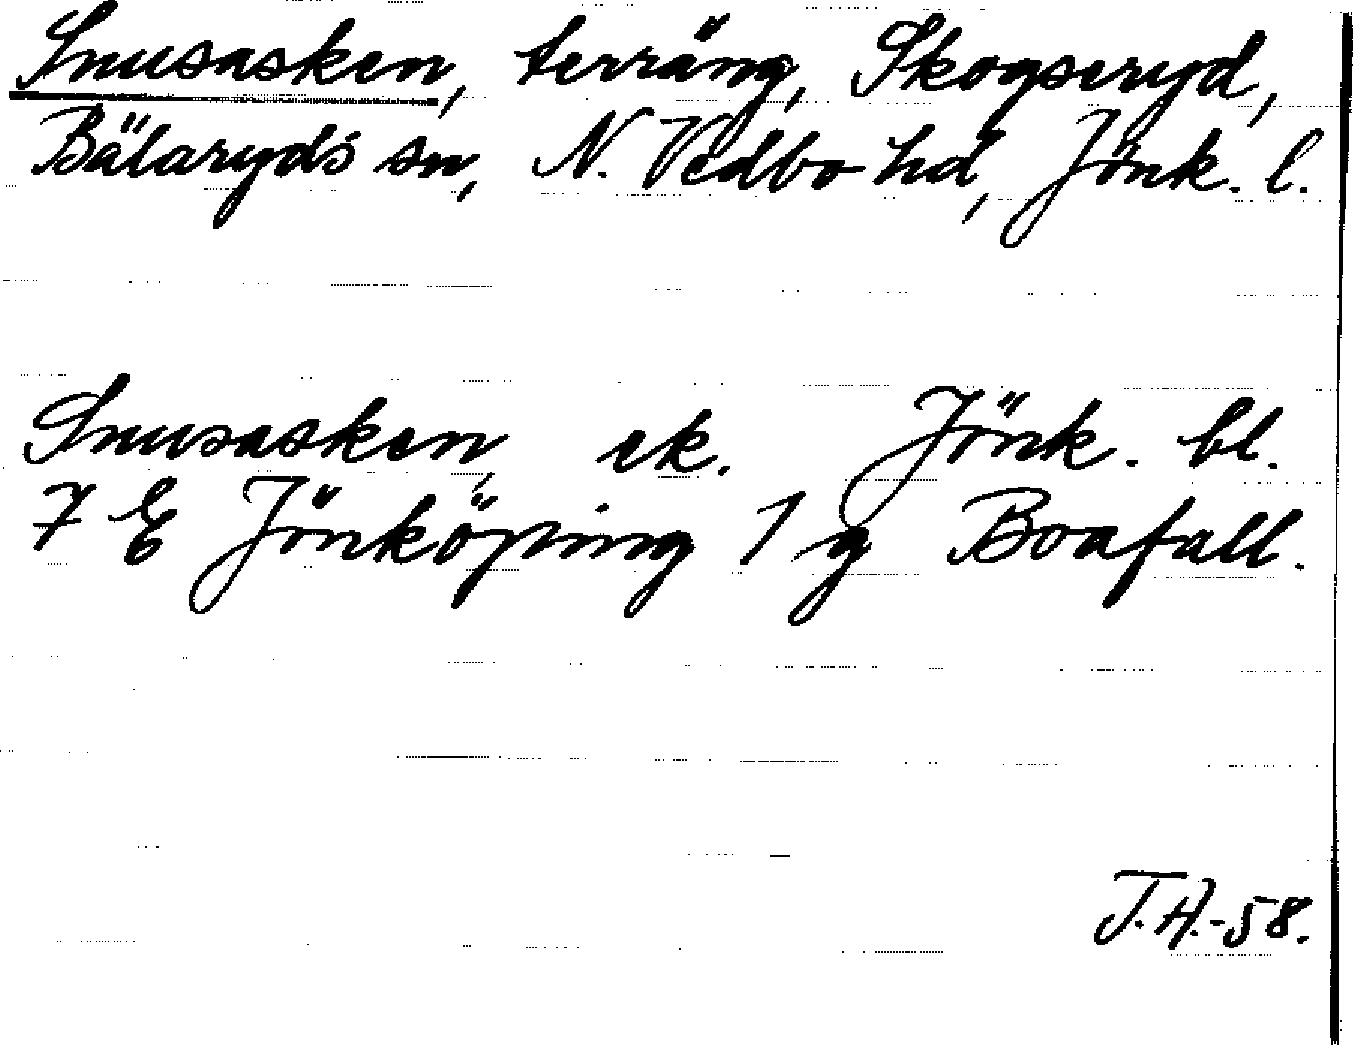 Snusasken, terräng, Skogseryd,
Bälaryds sn, N. Vedbo hd, Jönk. l.
Snusasken, ek. Jönk. bl.
7 E Jönköping 1 g Boafall.
T.A.-58.